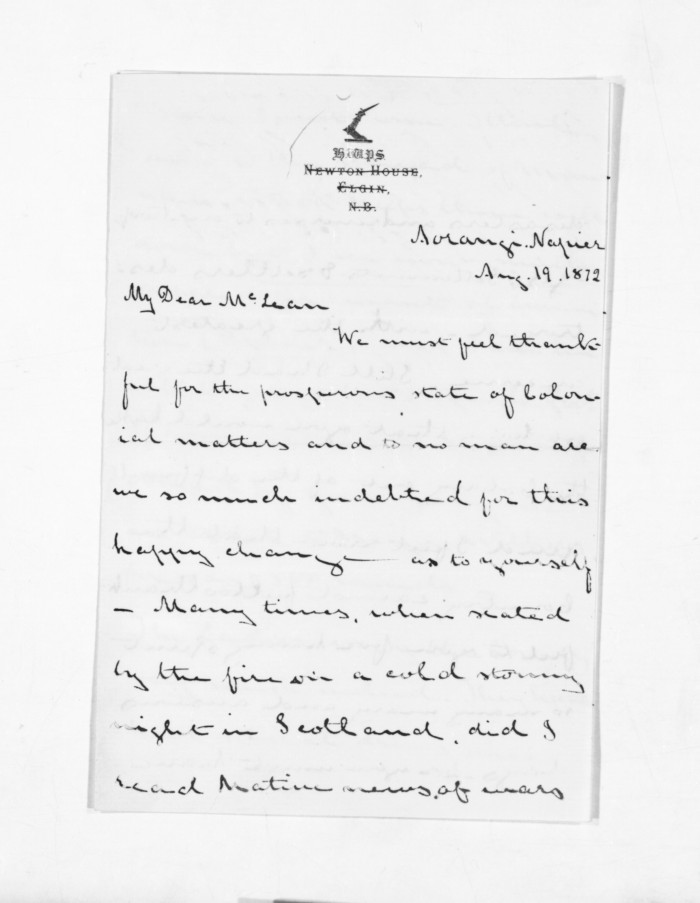 NEWTON HOUSE,
ELGIN,
N.B.
Aorangi. Napier
Aug. 19. 1872
My Dear McLean
We must feel thank-
ful for the prosperous state of Colon-
ial matters and to no man are
we so much indebted for this
happy change — as to yourself
— Many times, when seated
by the fire on a cold stormy
night in Scotland, did I
read Native news, of wars